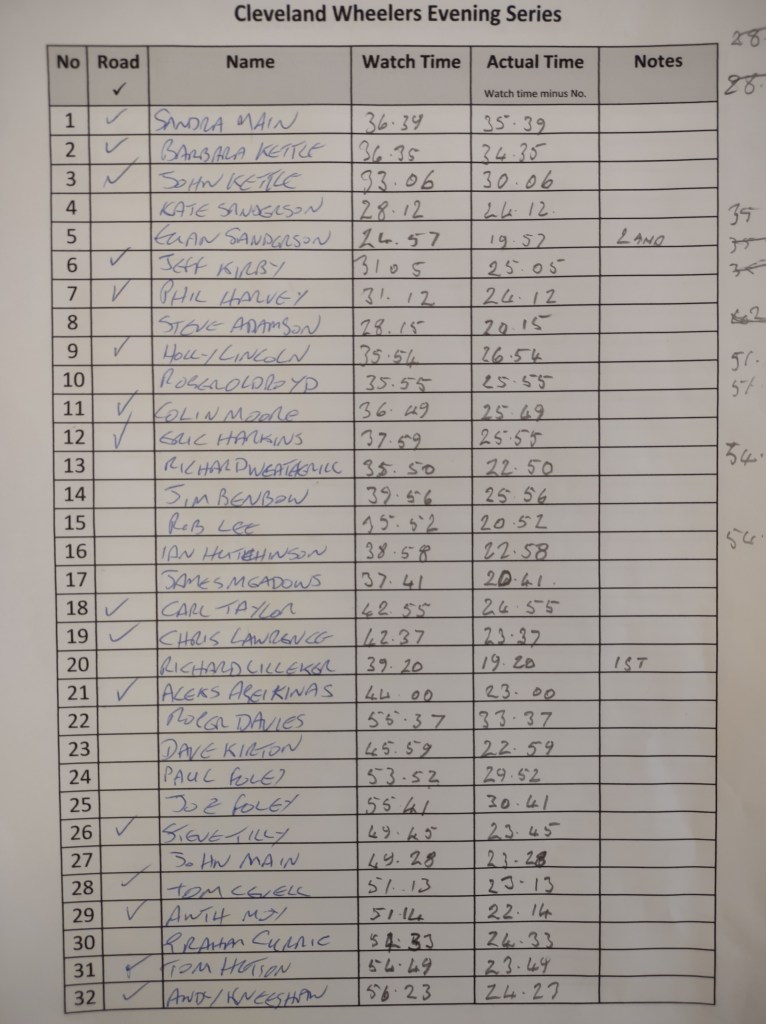 Cleveland Wheelers Evening Series
28.
No Road ✓ Name Watch Time Actual Time Notes
Watch time minus No.
28.
1 ✓ SANDRA MAIN 36.39 35.39
2 ✓ BARBARA KETTLE 36.35 34.35
3 ✓ JOHN KETTLE 33.06 30.06
4 KATE SANDERSON 28.12 24.12
35
5 SANDERSON 24.57 19.57 2ND
35
6 ✓ JEFF KIRBY 31 05 25.05
7 ✓ PHIL HARVEY 31.12 24.12
8 STEVE ADAMSON 28.15 20.15
9 ✓ HOLLY LINCOLN 35.54 26.54
51.
10 ROGER OLDROYD 35.55 25.55
51
11 ✓ COLIN MOORE 36.49 25.49
12 ✓ ERIC HARKINS 37.59 25.55
13 RICHARD WEATHERILL 35.50 22.50
54.
14 JIM BENBOW 39.56 25.56
15 ROB LEE 35.52 20.52
16 IAN HUTCHINSON 38.58 22.58
54.
17 JAMES MEADOWS 37.41 20.41.
18 ✓ CARL TAYLOR 42.55 24.55
19 ✓ CHRIS LAWRENCE 42.37 23.37
20 RICHARD LILLEKER 39.20 19.20 1ST
21 ✓ ALEKS 44.00 23.00
22 ROGER DAVIES 55.37 33.37
23 DAVE KIRTON 45.59 22.59
24 PAUL FOLEY 53.52 29.52
25 JOE FOLEY 55 41 30.41
26 ✓ STEVE TILLY 49.45 23.45
27 JOHN MAIN 49.28 23.28
28 ✓ TOM 51.13 23.13
29 ✓ 51.14 22.14
30 GRAHAM CURRIE 54.33 24.33
31 ✓ TOM HUTSON 54.49 23.49
32 ✓ ANDY KNEESHAW 56.23 24.27